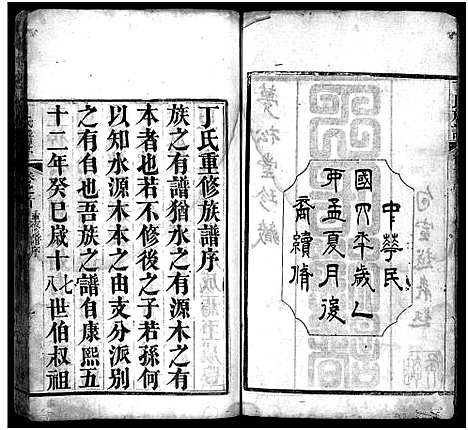 中華民
國四年歲乙
卯孟夏月後
裔續脩
夢松堂珍藏
丁氏重修族譜序
族之有譜猶水之有源木之有
本者也若不修後之子若孫何
以知水源木本之由支分派別
之有自也吾族之譜自康熙五
十二年癸巳歲十七八世伯叔祖